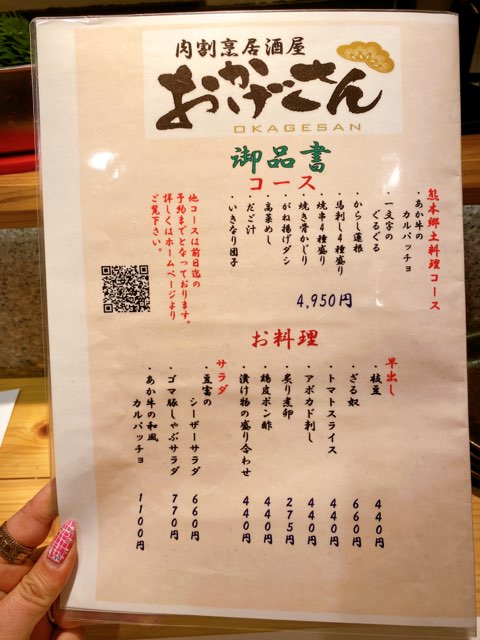 肉割烹居酒屋
おかげさん
OKAGESAN
御品書
コース
熊本郷土料理コース
・あか牛の
カルパッチョ
・一文字の
ぐるぐる
・からし蓮根
・馬刺し4種盛り
・焼串4種盛り
・焼き骨かじり
・がね揚げダシ
・高菜めし
・だご汁
・いきなり団子
4,950円
他コースは前日迄の
予約までとなっております。
詳しくはホームページより
ご覧下さい。
お料理
早出し
・枝豆 440円
・ざる奴 660円
・トマトスライス 440円
・アボカド刺し 440円
・炙り煮卵 275円
・鶏皮ポン酢 440円
・漬け物の盛り合わせ 440円
サラダ
・豆富の
シーザーサラダ 660円
・ゴマ豚しゃぶサラダ 770円
・あか牛の和風
カルパッチョ 1100円